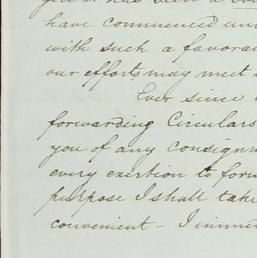 have commenced
with such a favora
our efforts may meet
Ever since
forwarding Circulars
you of any consignm
every exertion to for
purpose I shall take
convenient -